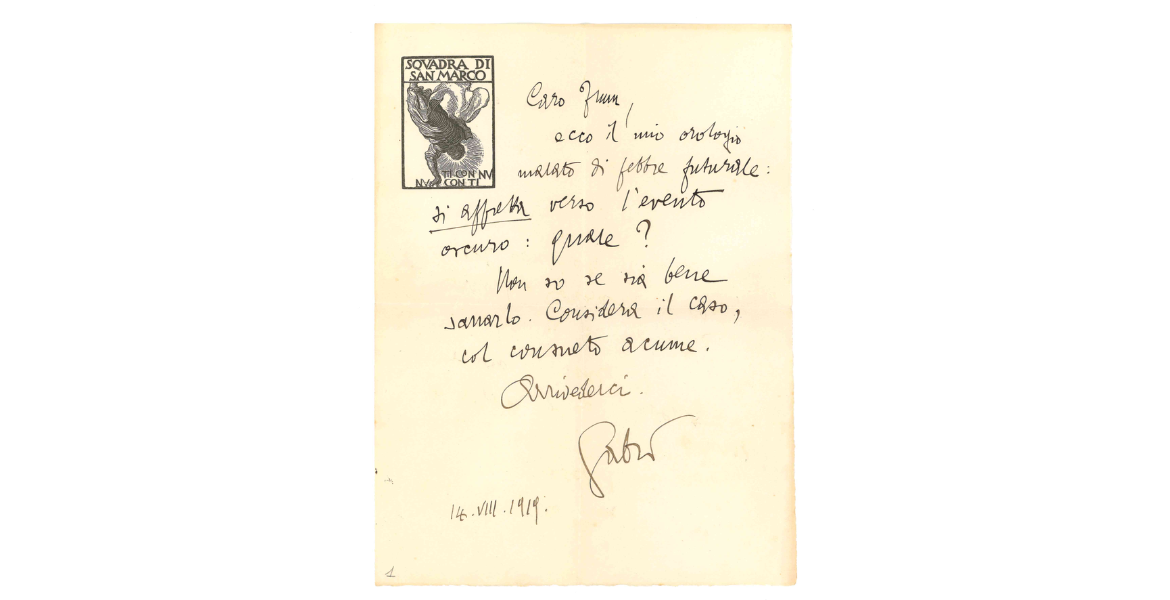 SQVADRA DI
SAN MARCO
TI CON NV
NV CON TI
Caro
ecco il mio orologio
malato di febbre futurale:
si affretta verso l'evento
oscuro: quale?
Non so se sia bene
sanarlo. Considera il caso,
col consueto acume.
Arrivederci.
14.VIII.1919.
1